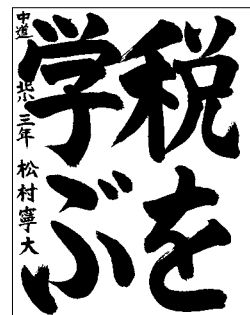 税を
学ぶ
中道北小 三年 松村寧大